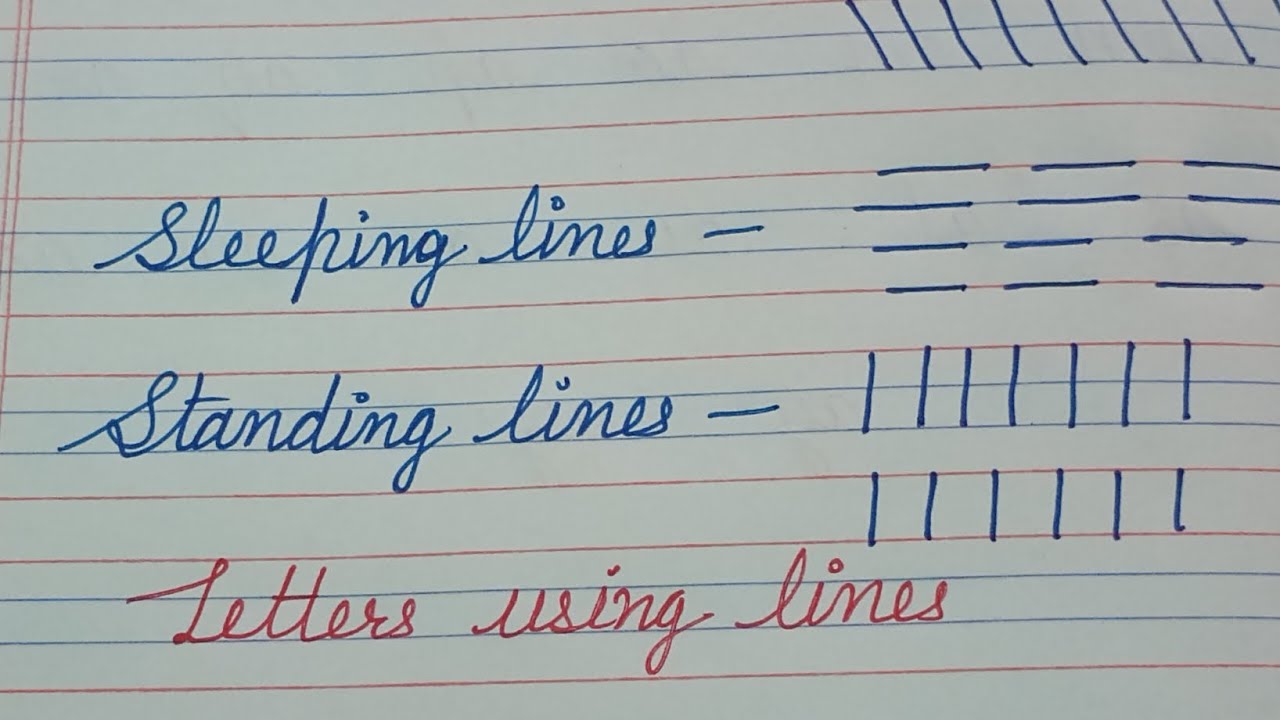 Sleeping lines –
Standing lines –
Letters using lines